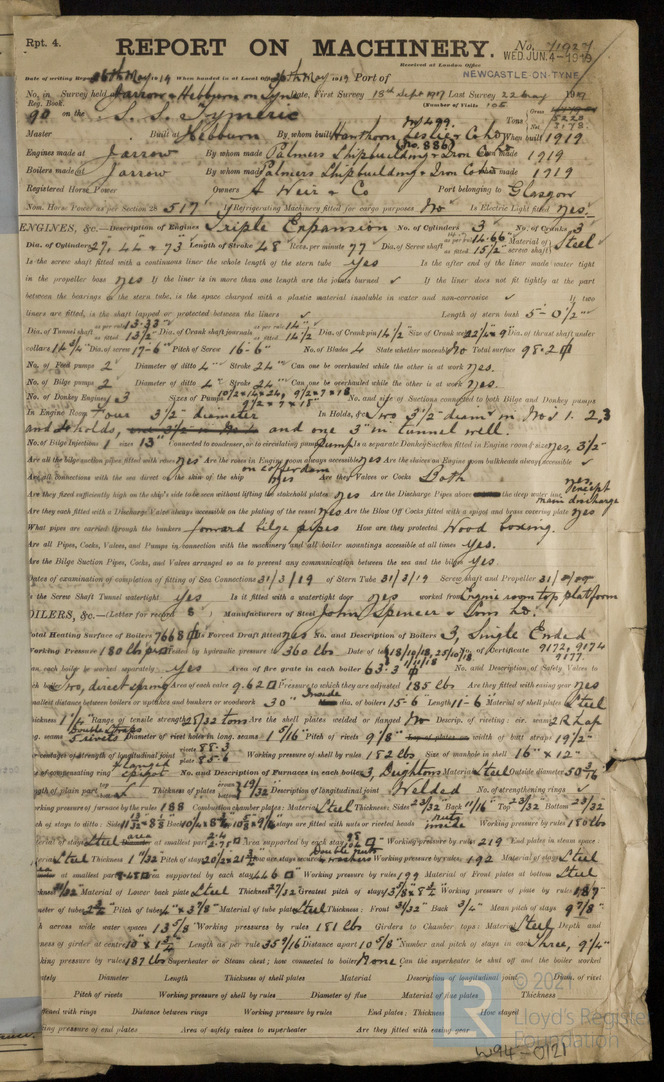 Rpt. 4.
REPORT ON MACHINERY.
No. 71927
WED. JUN. 4-1919
Received at London Office
Date of writing Report 26th May 1919 When handed in at Local Office 26th May 1919 Port of NEWCASTLE-ON-TYNE
No. in Survey held at Jarrow & Hebburn on Tyne Date, First Survey 18th Sept 1917 Last Survey 22 May 1919
Reg. Book. (Number of Visits 105
90 on the S. S. Tymeric Tons Gross 5220 Net 3178
Master Built at Hebburn By whom built Hawthorn Leslie & Co Ld No 499. When built 1919
Engines made at Jarrow By whom made Palmers Shipbuilding & Iron Co Ld (No. 886) when made 1919
Boilers made at Jarrow By whom made Palmers Shipbuilding & Iron Co Ld when made 1919
Registered Horse Power Owners A Weir & Co Port belonging to Glasgow
Nom. Horse Power as per Section 28 517 Is Refrigerating Machinery fitted for cargo purposes No Is Electric Light fitted Yes.
ENGINES, &c.—Description of Engines Triple Expansion No. of Cylinders 3 No. of Cranks 3
Dia. of Cylinders 27, 44 & 73" Length of Stroke 48 Revs. per minute 77 Dia. of Screw shaft as per rule 14.66" as fitted 15½" Material of screw shaft Steel
Is the screw shaft fitted with a continuous liner the whole length of the stern tube Yes Is the after end of the liner made water tight
in the propeller boss yes If the liner is in more than one length are the joints burned ✓ If the liner does not fit tightly at the part
between the bearings in the stern tube, is the space charged with a plastic material insoluble in water and non-corrosive ✓ If two
liners are fitted, is the shaft lapped or protected between the liners ✓ Length of stern bush 5-0½"
Dia. of Tunnel shaft as per rule 13.33" as fitted 13½" Dia. of Crank shaft journals as per rule 14" as fitted 14½ Dia. of Crank pin 14½ Size of Crank webs 22¼ x 9 Dia. of thrust shaft under
collars 14¾ Dia. of screw 17-6" Pitch of Screw 16-6" No. of Blades 4 State whether moveable No Total surface 98.2 ф
No. of Feed pumps 2 Diameter of ditto 4" Stroke 24" Can one be overhauled while the other is at work Yes.
No. of Bilge pumps 2 Diameter of ditto 4 Stroke 24" Can one be overhauled while the other is at work Yes.
No. of Donkey Engines 3 Sizes of Pumps 10½ x 14 x 24, 9½ x 7 x 18, 9½ x 7 x 18" No. and size of Suctions connected to both Bilge and Donkey pumps
In Engine Room Four 3½" diameter In Holds, &c. Two 3½" diam in No's 1. 2, 3
and 4 holds, and one 3" in tunnel well.
No. of Bilge Injections 1 sizes 13" Connected to condenser, or to circulating pump Pump Is a separate Donkey Suction fitted in Engine room & size yes, 3½"
Are all the bilge suction pipes fitted with roses yes Are the roses in Engine room always accessible yes Are the sluices on Engine room bulkheads always accessible ✓
Are all connections with the sea direct on the skin of the ship on cofferdam yes Are they Valves or Cocks Both
Are they fixed sufficiently high on the ship's side to be seen without lifting the stokehold plates yes Are the Discharge Pipes above the deep water line yes except main discharge
Are they each fitted with a Discharge Valve always accessible on the plating of the vessel yes Are the Blow Off Cocks fitted with a spigot and brass covering plate yes
What pipes are carried through the bunkers forward bilge pipes How are they protected Wood boxing.
Are all Pipes, Cocks, Valves, and Pumps in connection with the machinery and all boiler mountings accessible at all times Yes.
Are the Bilge Suction Pipes, Cocks, and Valves arranged so as to prevent any communication between the sea and the bilges Yes
Dates of examination of completion of fitting of Sea Connections 31/3/19 of Stern Tube 31/3/19 Screw shaft and Propeller
Is the Screw Shaft Tunnel watertight yes Is it fitted with a watertight door yes worked from Engine room top platform
BOILERS, &c.—(Letter for record S) Manufacturers of Steel John Spencer & Sons Ld.
Total Heating Surface of Boilers 7668 ф Is Forced Draft fitted yes No. and Description of Boilers 3, Single Ended
Working Pressure 180 lbs Tested by hydraulic pressure to 360 lbs Date of test 18/10/18, 25/10/18 1/11/18 No. of Certificate 9172, 9174 9177.
Can each boiler be worked separately Yes Area of fire grate in each boiler 63.3 ф No. and Description of Safety Valves to
each boiler Two, direct spring Area of each valve 9.62 □ Pressure to which they are adjusted 185 lbs Are they fitted with easing gear yes
smallest distance between boilers or uptakes and bunkers or woodwork 30" Inside dia. of boilers 15-6 Length 11-6" Material of shell plates Steel
Thickness 1¼ Range of tensile strength 28/32 tons Are the shell plates welded or flanged No Descrip. of riveting: cir. seams 2R Lap
long. seams Double Straps 5 rivets Diameter of rivet holes in long. seams 1 5/16" Pitch of rivets 9⅛" width of butt straps 19½"
percentages of strength of longitudinal joint rivets 88.3 plate 85.6 Working pressure of shell by rules 182 lbs Size of manhole in shell 16" x 12"
of compensating ring flanged spigot No. and Description of Furnaces in each boiler 3, Deightons Material Steel Outside diameter 50 3/16"
Length of plain part Thickness of plates 19/32 Description of longitudinal joint Welded No. of strengthening rings ✓
Working pressure of furnace by the rules 188 Combustion chamber plates: Material Steel Thickness: Sides 23/32 Back 11/16" Top 23/32 Bottom 23/32
Pitch of stays to ditto: Sides Back Top If stays are fitted with nuts or riveted heads nuts inside Working pressure by rules 180 lbs
Material of stays Steel area at smallest part Area supported by each stay Working pressure by rules 219 End plates in steam space:
Material Steel Thickness 1 7/32 Pitch of stays 20½ x 21¾ How are stays secured Double nuts & washers Working pressure by rules 192 Material of stays Steel
at smallest part supported by each stay 446 □ Working pressure by rules 199 Material of Front plates at bottom Steel
Thickness Material of Lower back plate Steel Thickness 27/32 Greatest pitch of stays Working pressure of plate by rules 187
Diameter of tubes 2½" Pitch of tubes 4" x 3⅞" Material of tube plates Steel Thickness: Front 31/32 Back ¾" Mean pitch of stays 9⅞"
Pitch across wide water spaces 13⅝ Working pressures by rules 181 lbs Girders to Chamber tops: Material Steel Depth and
thickness of girder at centre 10" x 1¾ Length as per rule 35 9/16 Distance apart 10⅝ Number and pitch of stays in each Three, 9¼"
Working pressure by rules 187 lbs Superheater or Steam chest; how connected to boiler None Can the superheater be shut off and the boiler worked
separately Diameter Length Thickness of shell plates Material Description of longitudinal joint Diam. of rivet
Pitch of rivets Working pressure of shell by rules Diameter of flue Material of flue plates Thickness
Stiffened with rings Distance between rings Working pressure by rules End plates: Thickness How stayed
Working pressure of end plates Area of safety valves to superheater Are they fitted with easing gear
© 2021
Lloyd's Register
Foundation
LR
W94-0121